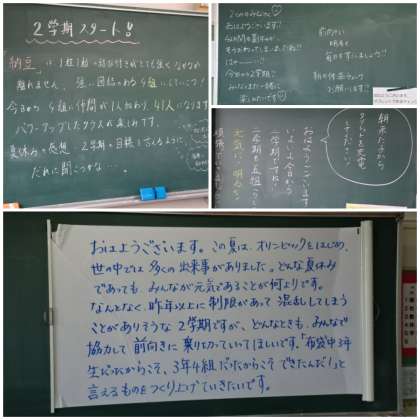 2学期スタート!!
「納豆」は1粒1粒の結び付きがとても強くなかなか
離れません。強い団結のある4組にしていこう!
今日から4組に仲間が1人加わり、41人になります
パワーアップしたクラスが楽しみです。
夏休みの感想・2学期の目標を言えるように。
だれに聞こうかな…。
おはようございます!!
今日から2学期!
みなさんとまた一緒に
前向きに
明るく
朝来た子から
おはようございます
いよいよ今日から
二学期ですね!
二学期も五組らしく
元気に!明るく
おはようございます。この夏は、オリンピックをはじめ、
世の中では多くの出来事がありました。どんな夏休み
であっても、みんなが元気であることが何よりです。
なんとなく、昨年以上に制限があって混乱してしまう
ことがありそうな2学期ですが、どんなときも、みんなで
協力して前向きに乗り切っていってほしいです。「布袋中3年
生だったからこそ、3年4組だったからこそできたんだ!」と
言えるものをつくり上げていきたいです。